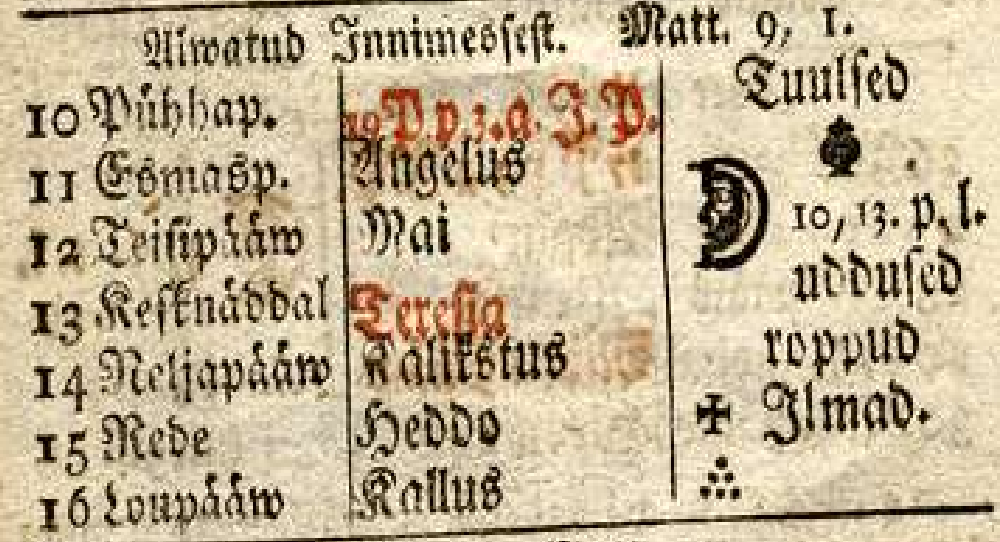 Aiwatud Innimessest. Matt. 9, 1.
10 Pühhap. 19 P. p. 3. a. J. P. Tuulsed
11 Esmasp. Angelus
12 Teisipääw Mai 10, 13. p. l.
13 Kesknäddal Teresia uddused
14 Neljapääw Kalikstus roppud
15 Rede Heddo Ilmad.
16 Loupääw Kallus